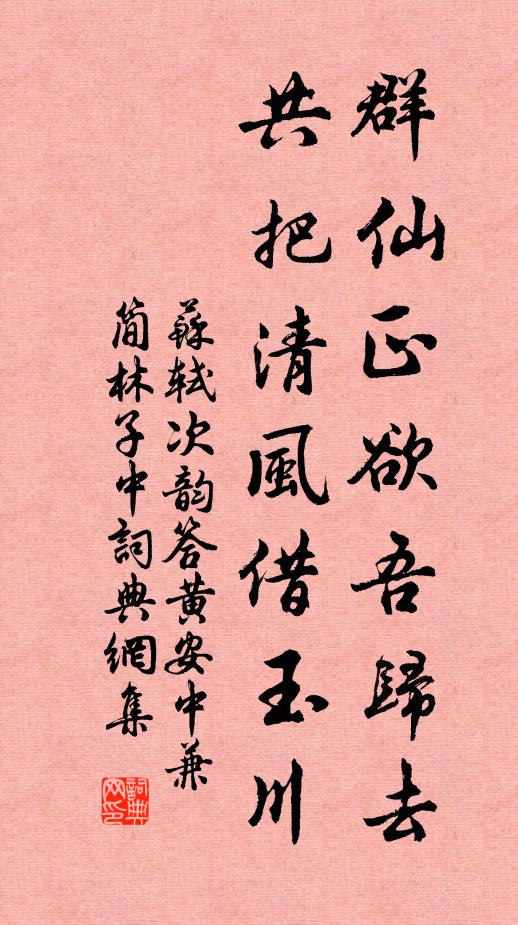 群仙正欲吾歸去
共把清風借玉川
蘇軾次韵答黄安中兼
簡林子中詞典網集
詞典网印